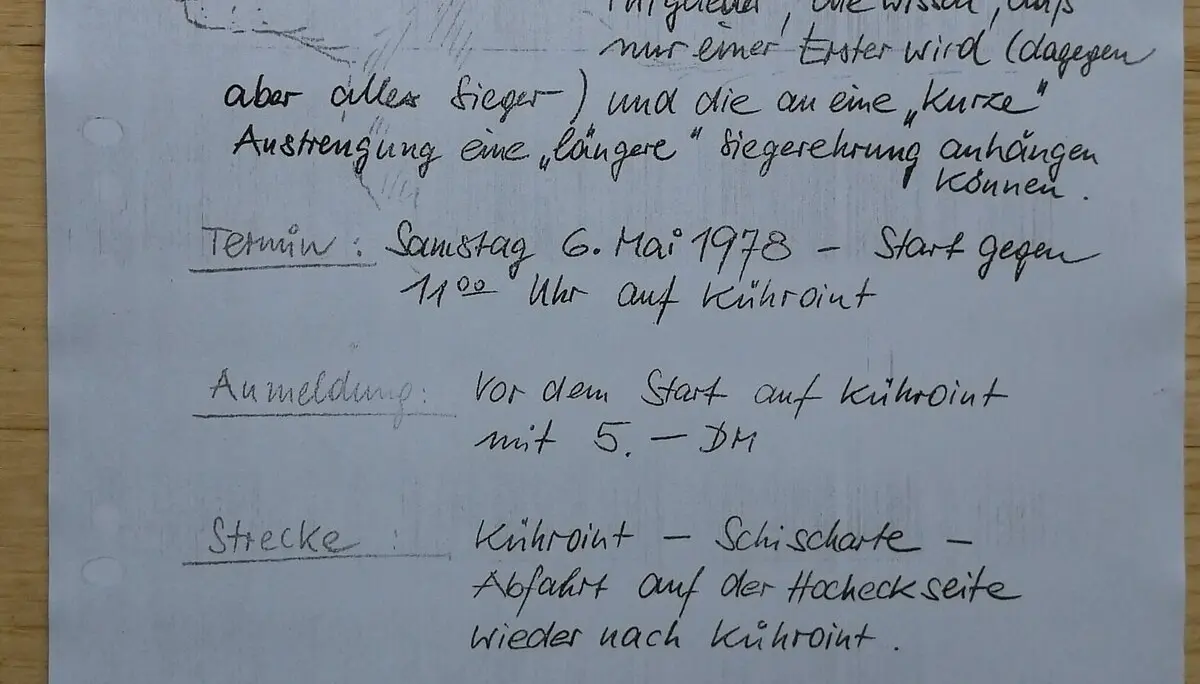 Mitglieder, die wissen, daß
nur einer Erster wird (dagegen
aber alles Sieger) und die an eine „Kurze"
Anstrengung eine „längere" Siegerehrung anhängen
können.
Termin: Samstag 6. Mai 1978 – Start gegen
11⁰⁰ Uhr auf Kühroint
Anmeldung: Vor dem Start auf Kühroint
mit 5.— DM
Strecke: Kühroint – Schischarte –
Abfahrt auf der Hocheckseite
wieder nach Kühroint.